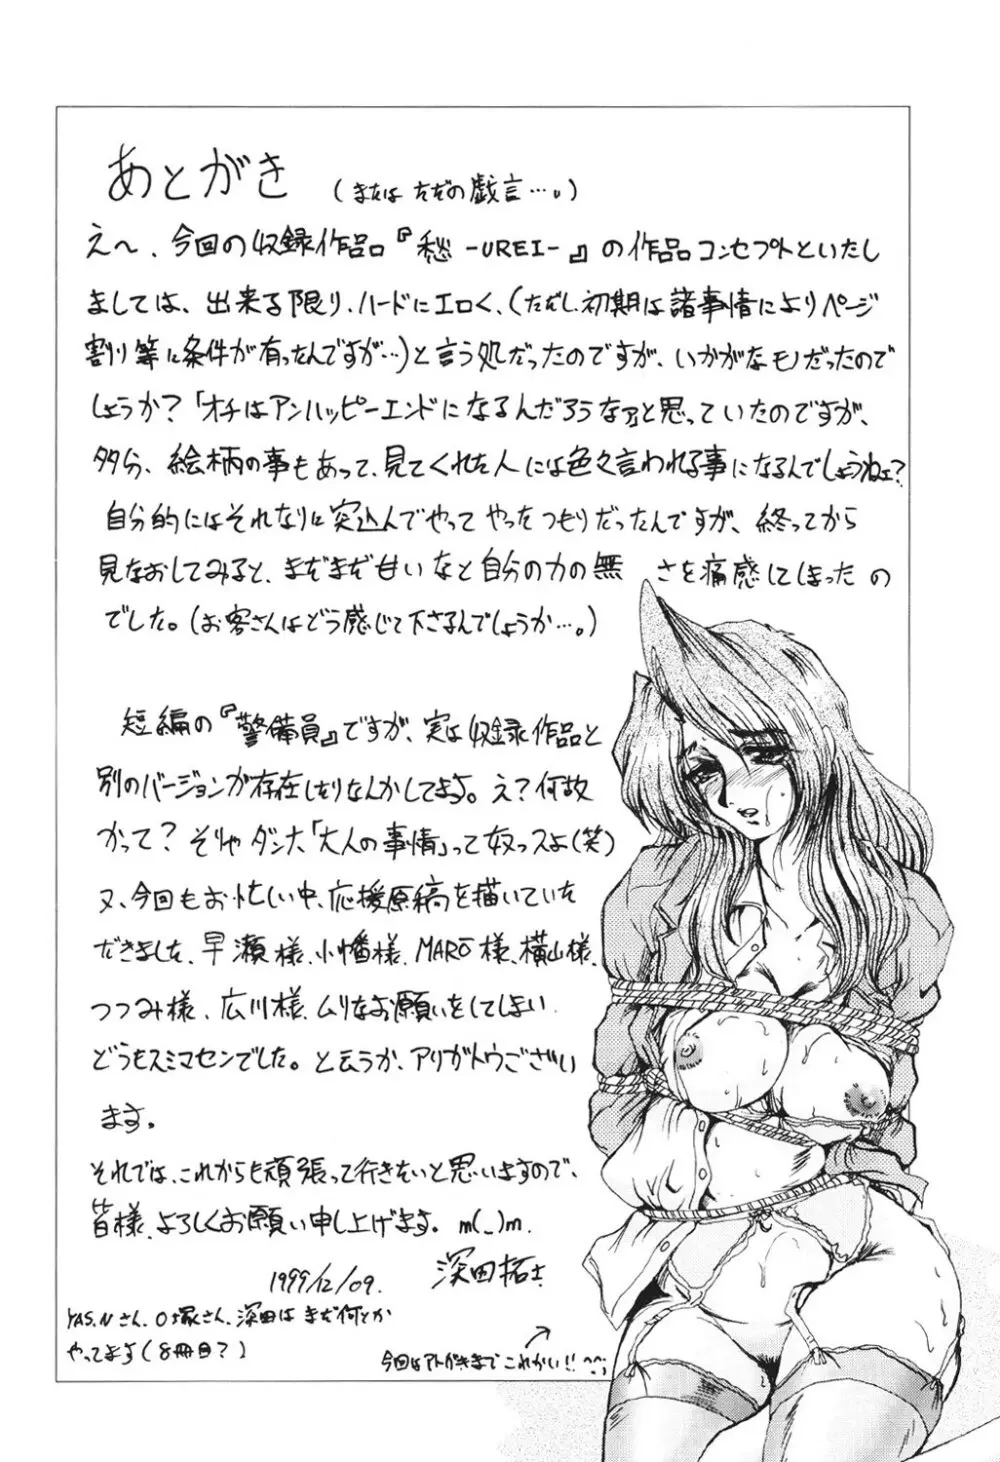 あとがき (またはただの戯言…。)
え〜、今回の収録作品『愁-UREI-』の作品コンセプトといたし
ましては、出来る限り、ハードにエロく、(ただし、初期は諸事情によりページ
割り等に条件が有ったんですが…)と言う処だったのですが、いかがなモノだったので
しょうか?「オチはアンハッピーエンドになるんだろうなァと思っていたのですが、
多分、絵柄の事もあって、見てくれた人には色々言われる事になるんでしょうねェ?
自分的にはそれなりに突込んでやってやったつもりだったんですが、終ってから
見なおしてみると、まだまだ甘いなと自分の力の無さを痛感してしまったの
でした。(お客さんはどう感じて下さるんでしょうか…。)
短編の『警備員』ですが、実は収録作品と
別のバージョンが存在したりなんかしてます。え?何故
かって?そりゃダンナ「大人の事情」って奴っスよ(笑)
又、今回もお忙しい中、応援原稿を描いていた
だきました、早瀬様、小幡様、MARO様、横山様、
つつみ様、広川様、ムリなお願いをしてしまい
どうもスミマセンでした。と云うか、アリガトウござい
ます。
それでは、これからも頑張って行きたいと思いますので、
皆様、よろしくお願い申し上げます。m(_)m.
1999/12/09. 深田拓士
YAS.Nさん、O塚さん、深田はまだ何とか
やってます(8冊目?)
今回はアトがきまでこれかい!!